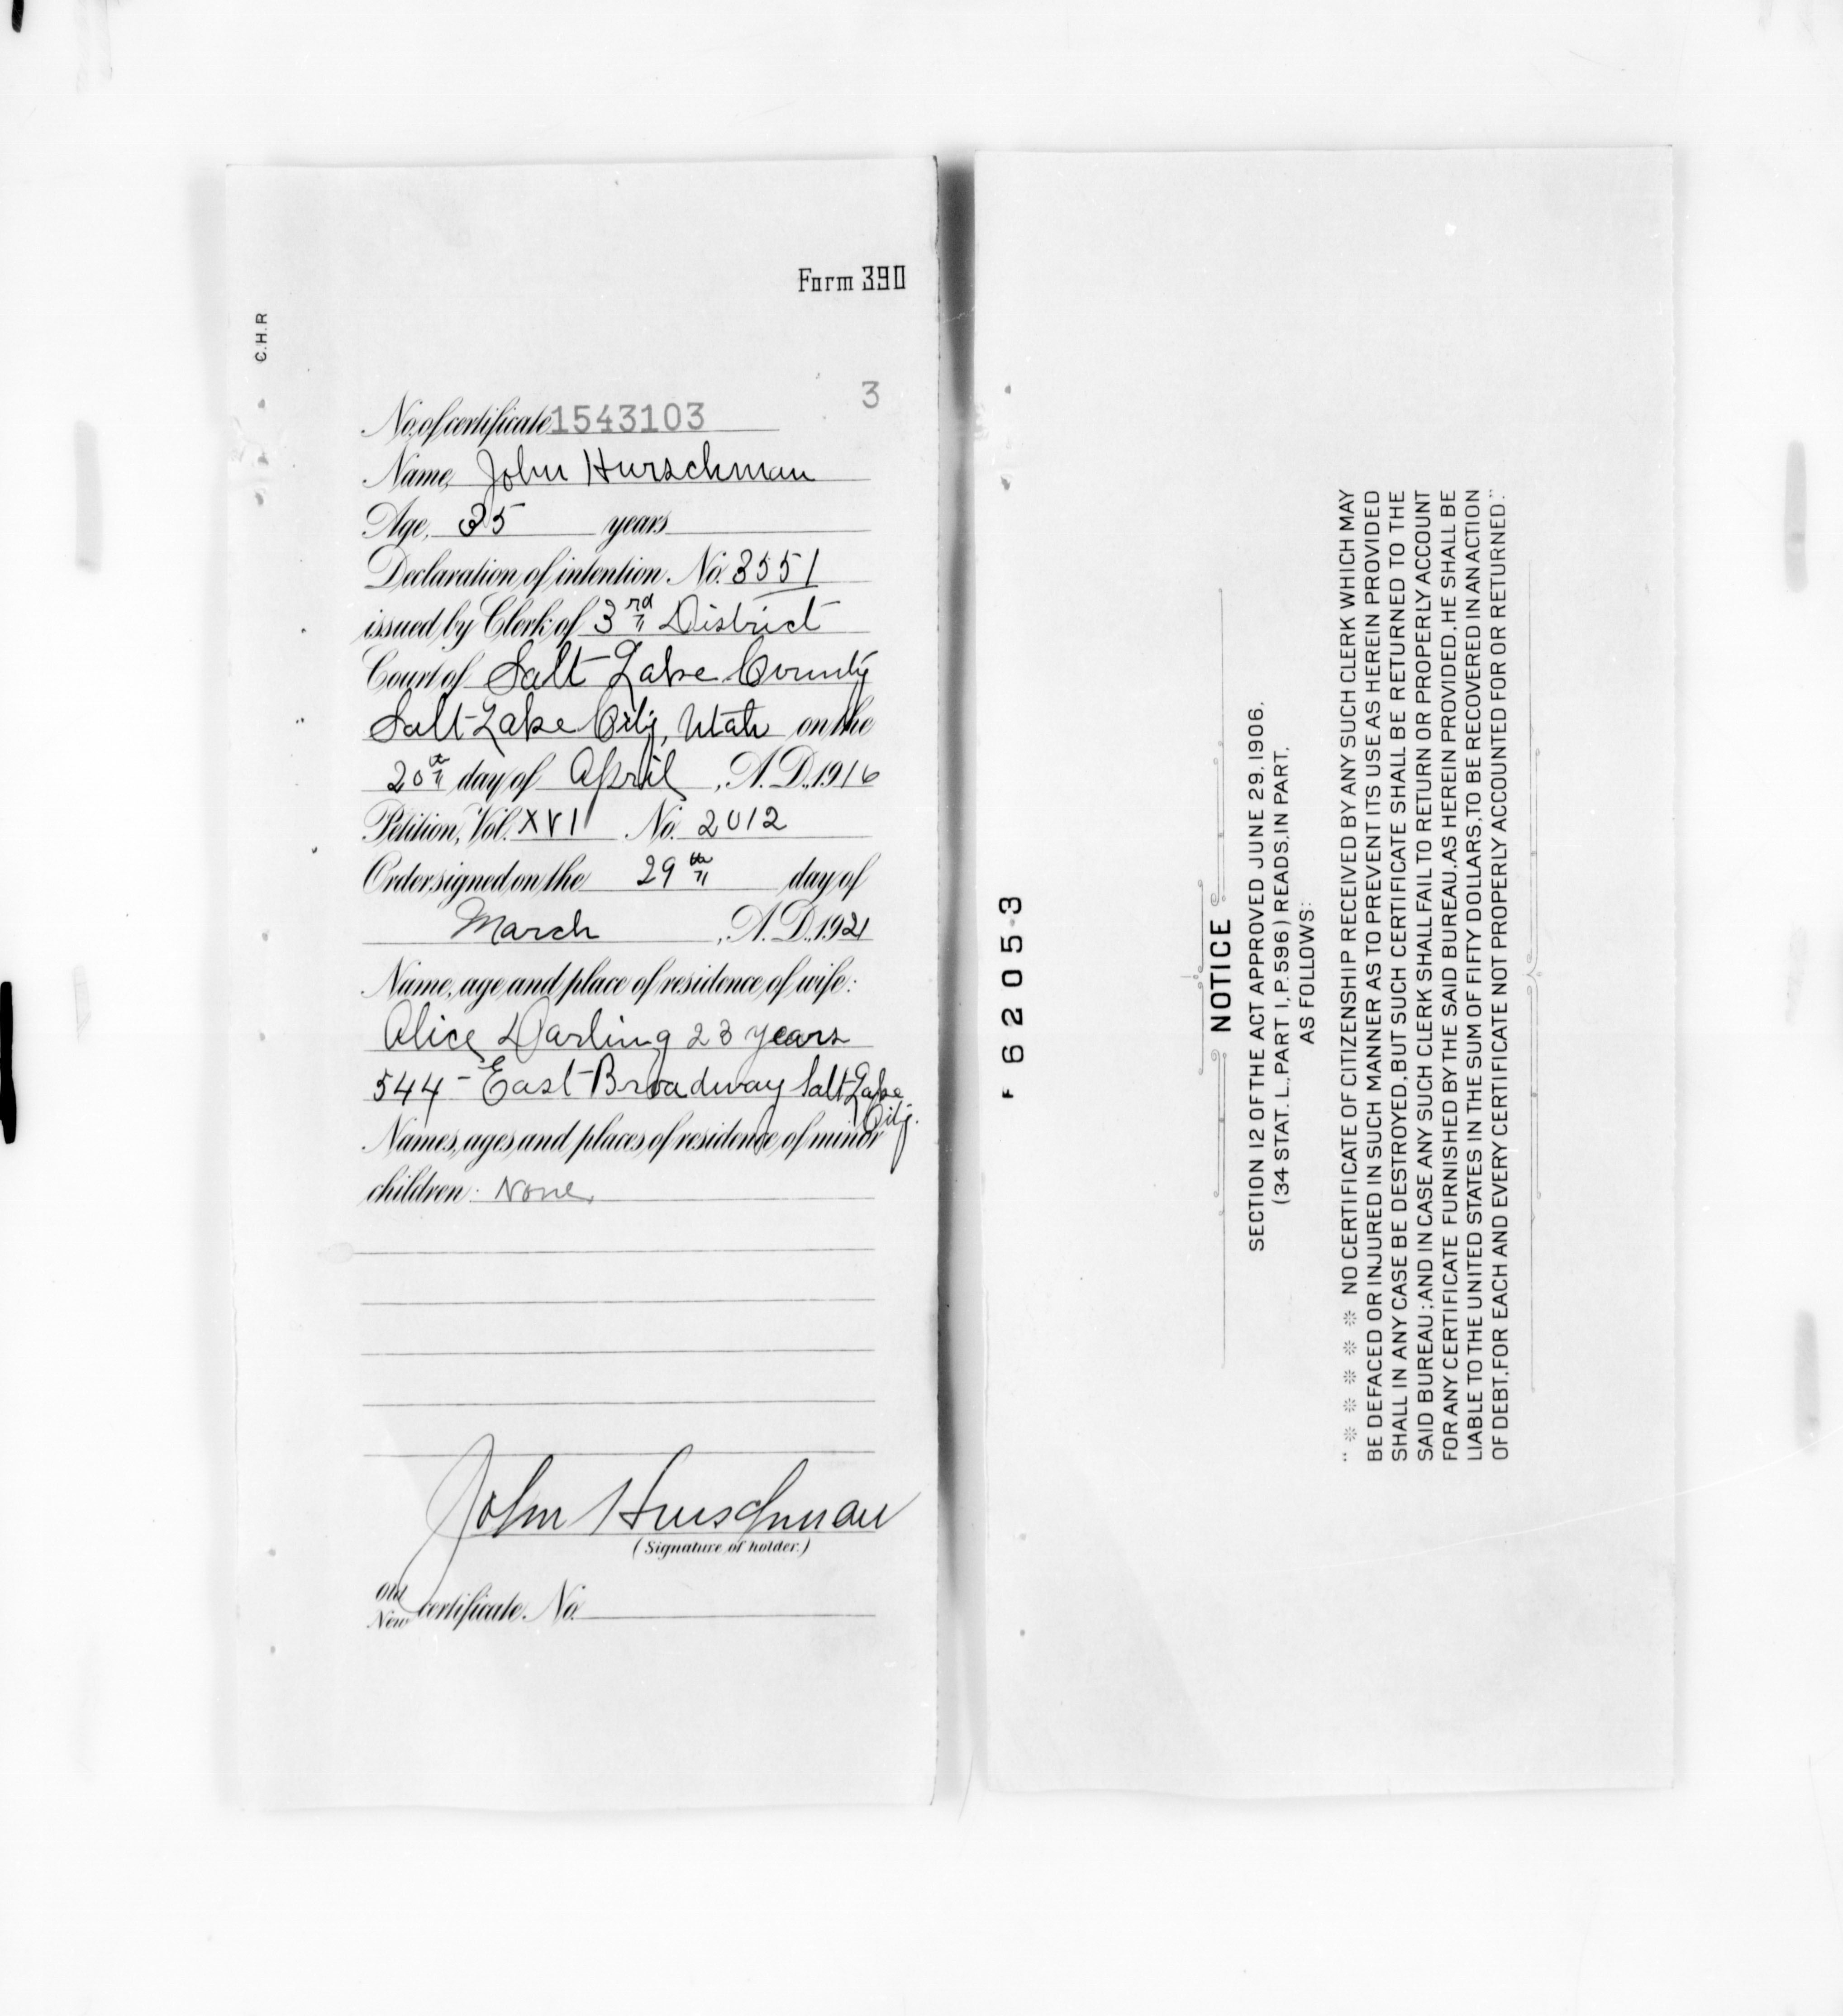 Form 390
C.H.R
3
No. of certificate 1543103
Name, John Hurschman
Age, 35 years
Declaration of intention No. 3551
issued by Clerk of 3rd District
Court of Salt Lake County
Salt Lake City, Utah on the
20th day of April, A.D. 1916
Petition, Vol. XVI No. 2012
Order signed on the 29th day of
March, A.D. 1921
Name, age and place of residence of wife:
Alice Darling 23 years
544 - East Broadway Salt Lake
City.
Names, ages and places of residence of minor
children: None
John Hurschman
(Signature of holder.)
Old
New certificate No.
F 62053
NOTICE
SECTION 12 OF THE ACT APPROVED JUNE 29, 1906,
(34 STAT. L., PART I, P. 596) READS, IN PART,
AS FOLLOWS:
" * * * * * NO CERTIFICATE OF CITIZENSHIP RECEIVED BY ANY SUCH CLERK WHICH MAY
BE DEFACED OR INJURED IN SUCH MANNER AS TO PREVENT ITS USE AS HEREIN PROVIDED
SHALL IN ANY CASE BE DESTROYED, BUT SUCH CERTIFICATE SHALL BE RETURNED TO THE
SAID BUREAU; AND IN CASE ANY SUCH CLERK SHALL FAIL TO RETURN OR PROPERLY ACCOUNT
FOR ANY CERTIFICATE FURNISHED BY THE SAID BUREAU, AS HEREIN PROVIDED, HE SHALL BE
LIABLE TO THE UNITED STATES IN THE SUM OF FIFTY DOLLARS, TO BE RECOVERED IN AN ACTION
OF DEBT, FOR EACH AND EVERY CERTIFICATE NOT PROPERLY ACCOUNTED FOR OR RETURNED."